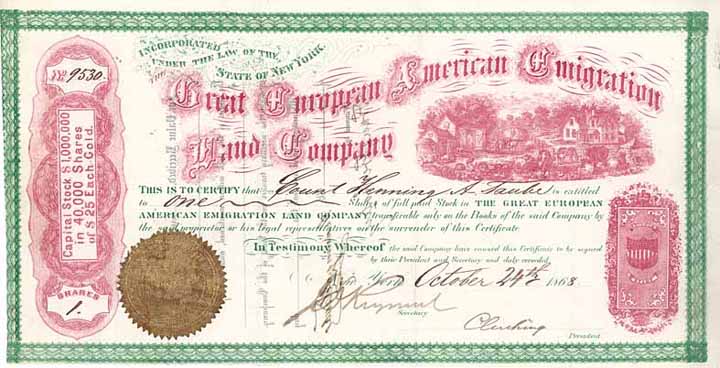 No 9530
Capital Stock $1,000,000
in 40,000 Shares
of $25 Each Gold.
SHARES
1.
INCORPORATED
UNDER THE LAW OF THE
STATE OF NEW YORK.
The
Great European American Emigration
Land Company
THIS IS TO CERTIFY that Count Henning A. Taube is entitled
to one Shares of full paid Stock in THE GREAT EUROPEAN
AMERICAN EMIGRATION LAND COMPANY transferable only on the Books of the said Company by
the said proprietor or his legal representatives on the surrender of this Certificate
In Testimony Whereof the said Company have caused this Certificate to be signed
by their President and Secretary and duly
New York October 24th 1868
Secretary
President